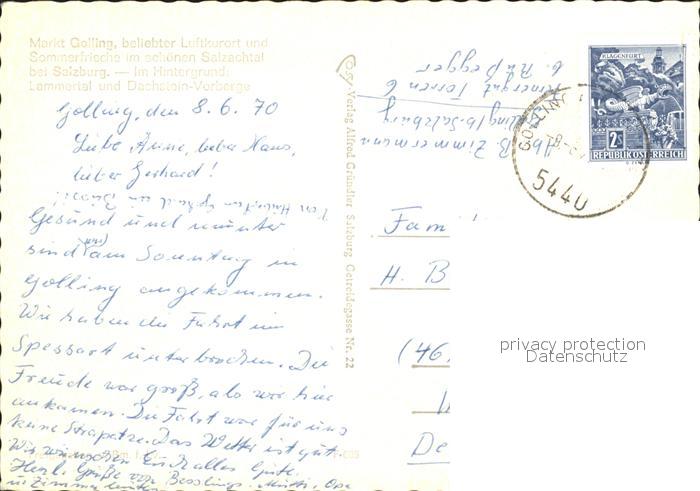 Markt Golling, beliebter Luftkurort und
Sommerfrische im schönen Salzachtal
bei Salzburg. — Im Hintergrund:
Lammertal und Dachstein-Vorberge
Golling, den 8. 6. 70
Liebe Änne, lieber Hans,
lieber Gerhard!
Gesund und munter
sind wir am Sonntag in
Golling angekommen.
Wir haben die Fahrt im
Spessart unterbrochen. Die
Freude war groß, als wir hier
ankamen. Die Fahrt war für uns
keine Strapatze. Das Wetter ist gut.
Wir wünschen Euch alles Gute.
Herzl. Grüße von
Verlag Alfred Gründler, Salzburg, Getreidegasse Nr. 22
Abs. B. Zimmermann
Golling/b. Salzburg
b.
KLAGENFURT
2S
REPUBLIK ÖSTERREICH
GOLLING
5440
Fam
H. B
(46
De
privacy protection
Datenschutz